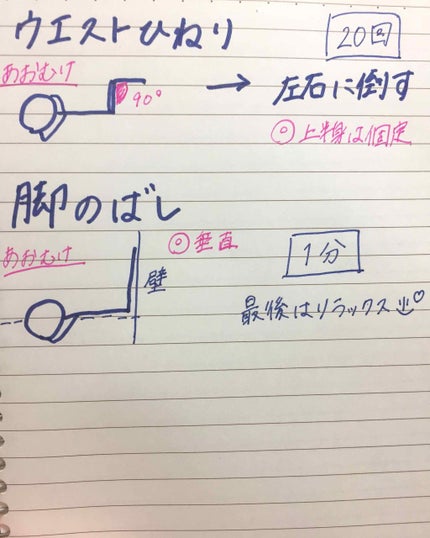 ウエストひねり
20回
あおむけ
90°
→ 左右に倒す
◎上半身は固定
脚のばし
あおむけ
◎垂直
1分
壁
最後はリラックス